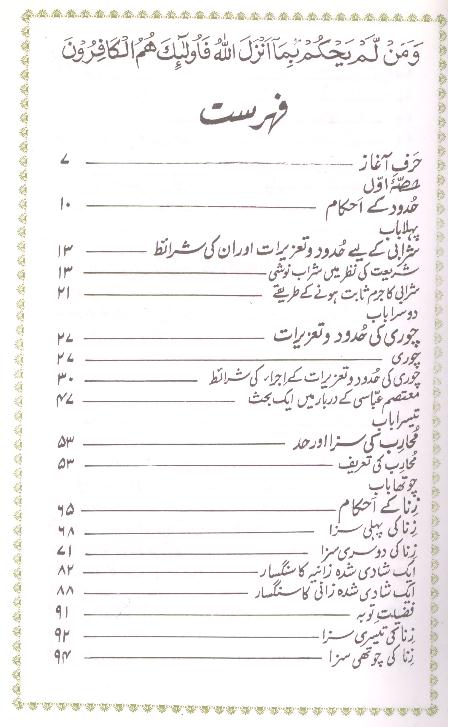 وَمَنْ لَّمْ يَحْكُمْ بِمَا اَنْزَلَ اللهُ فَاُولٰٓئِكَ هُمُ الْكَافِرُوْنَ
فہرست
حرفِ آغاز ۷
حصّۂ اوّل
حُدود کے اَحکام ۱۰
پہلا باب
شرابی کے لیے حُدود و تعزیرات اور ان کی شرائط ۱۳
شریعت کی نظر میں شراب نوشی ۱۳
شرابی کا جرم ثابت ہونے کے طریقے ۲۱
دوسرا باب
چوری کی حُدود و تعزیرات ۲۷
چوری ۲۷
چوری کی حُدود و تعزیرات کے اجراء کی شرائط ۳۰
معتصم عبّاسی کے دربار میں ایک بحث ۴۷
تیسرا باب
مُحارِب کی سزا اور حد ۵۳
مُحارِب کی تعریف ۵۳
چوتھا باب
زِنا کے اَحکام ۶۵
زِنا کی پہلی سزا ۶۸
زِنا کی دوسری سزا ۷۱
ایک شادی شدہ زانیہ کا سنگسار ۸۲
ایک شادی شدہ زانی کا سنگسار ۸۸
فضیلتِ توبہ ۹۱
زِنا کی تیسری سزا ۹۲
زِنا کی چوتھی سزا ۹۴